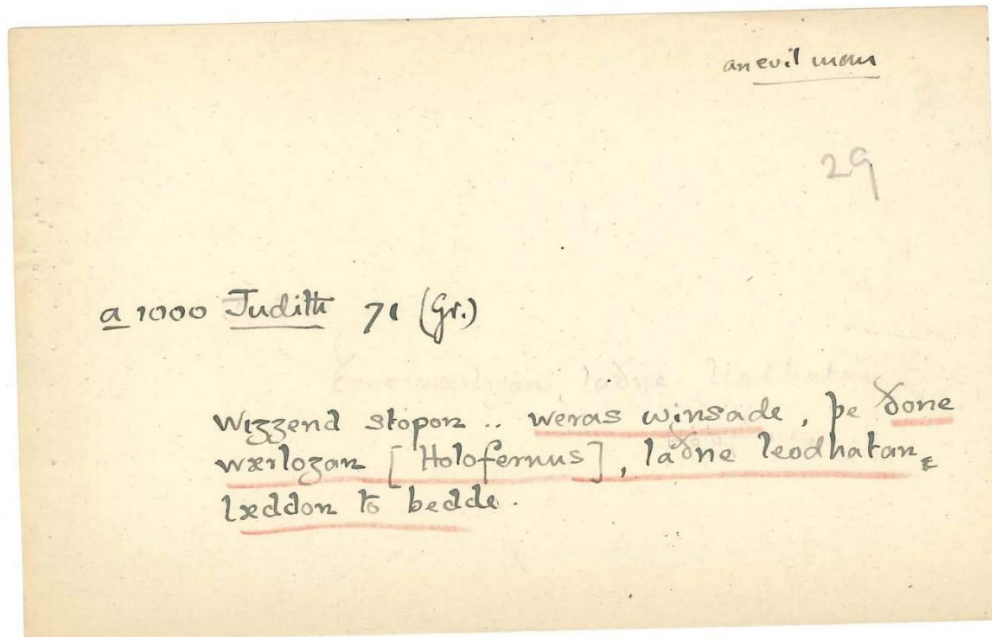 an evil man
29
a 1000 Judith 71 (Gr.)
Wiȝȝend stopon .. weras winsade, þe ðone
wærloȝan [Holofernus], laðne leodhatan,
læddon to bedde.